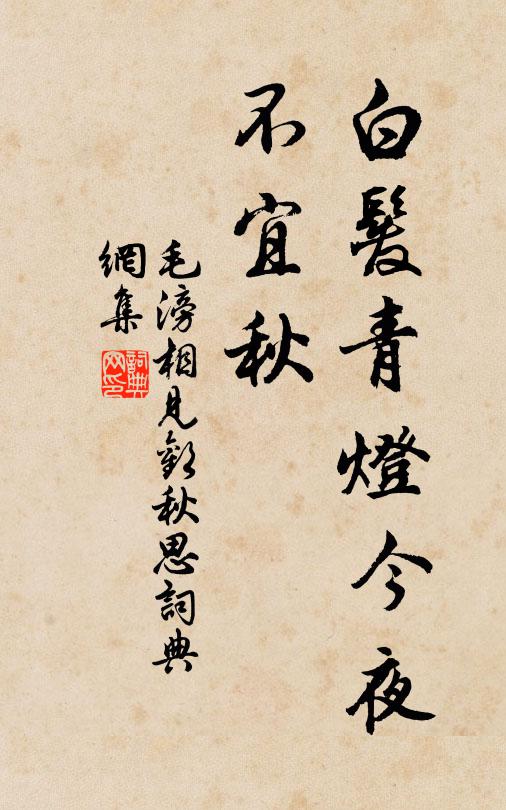 白髮青燈今夜
不宜秋
毛滂相見歡秋思詞典
網集
詞典
网印